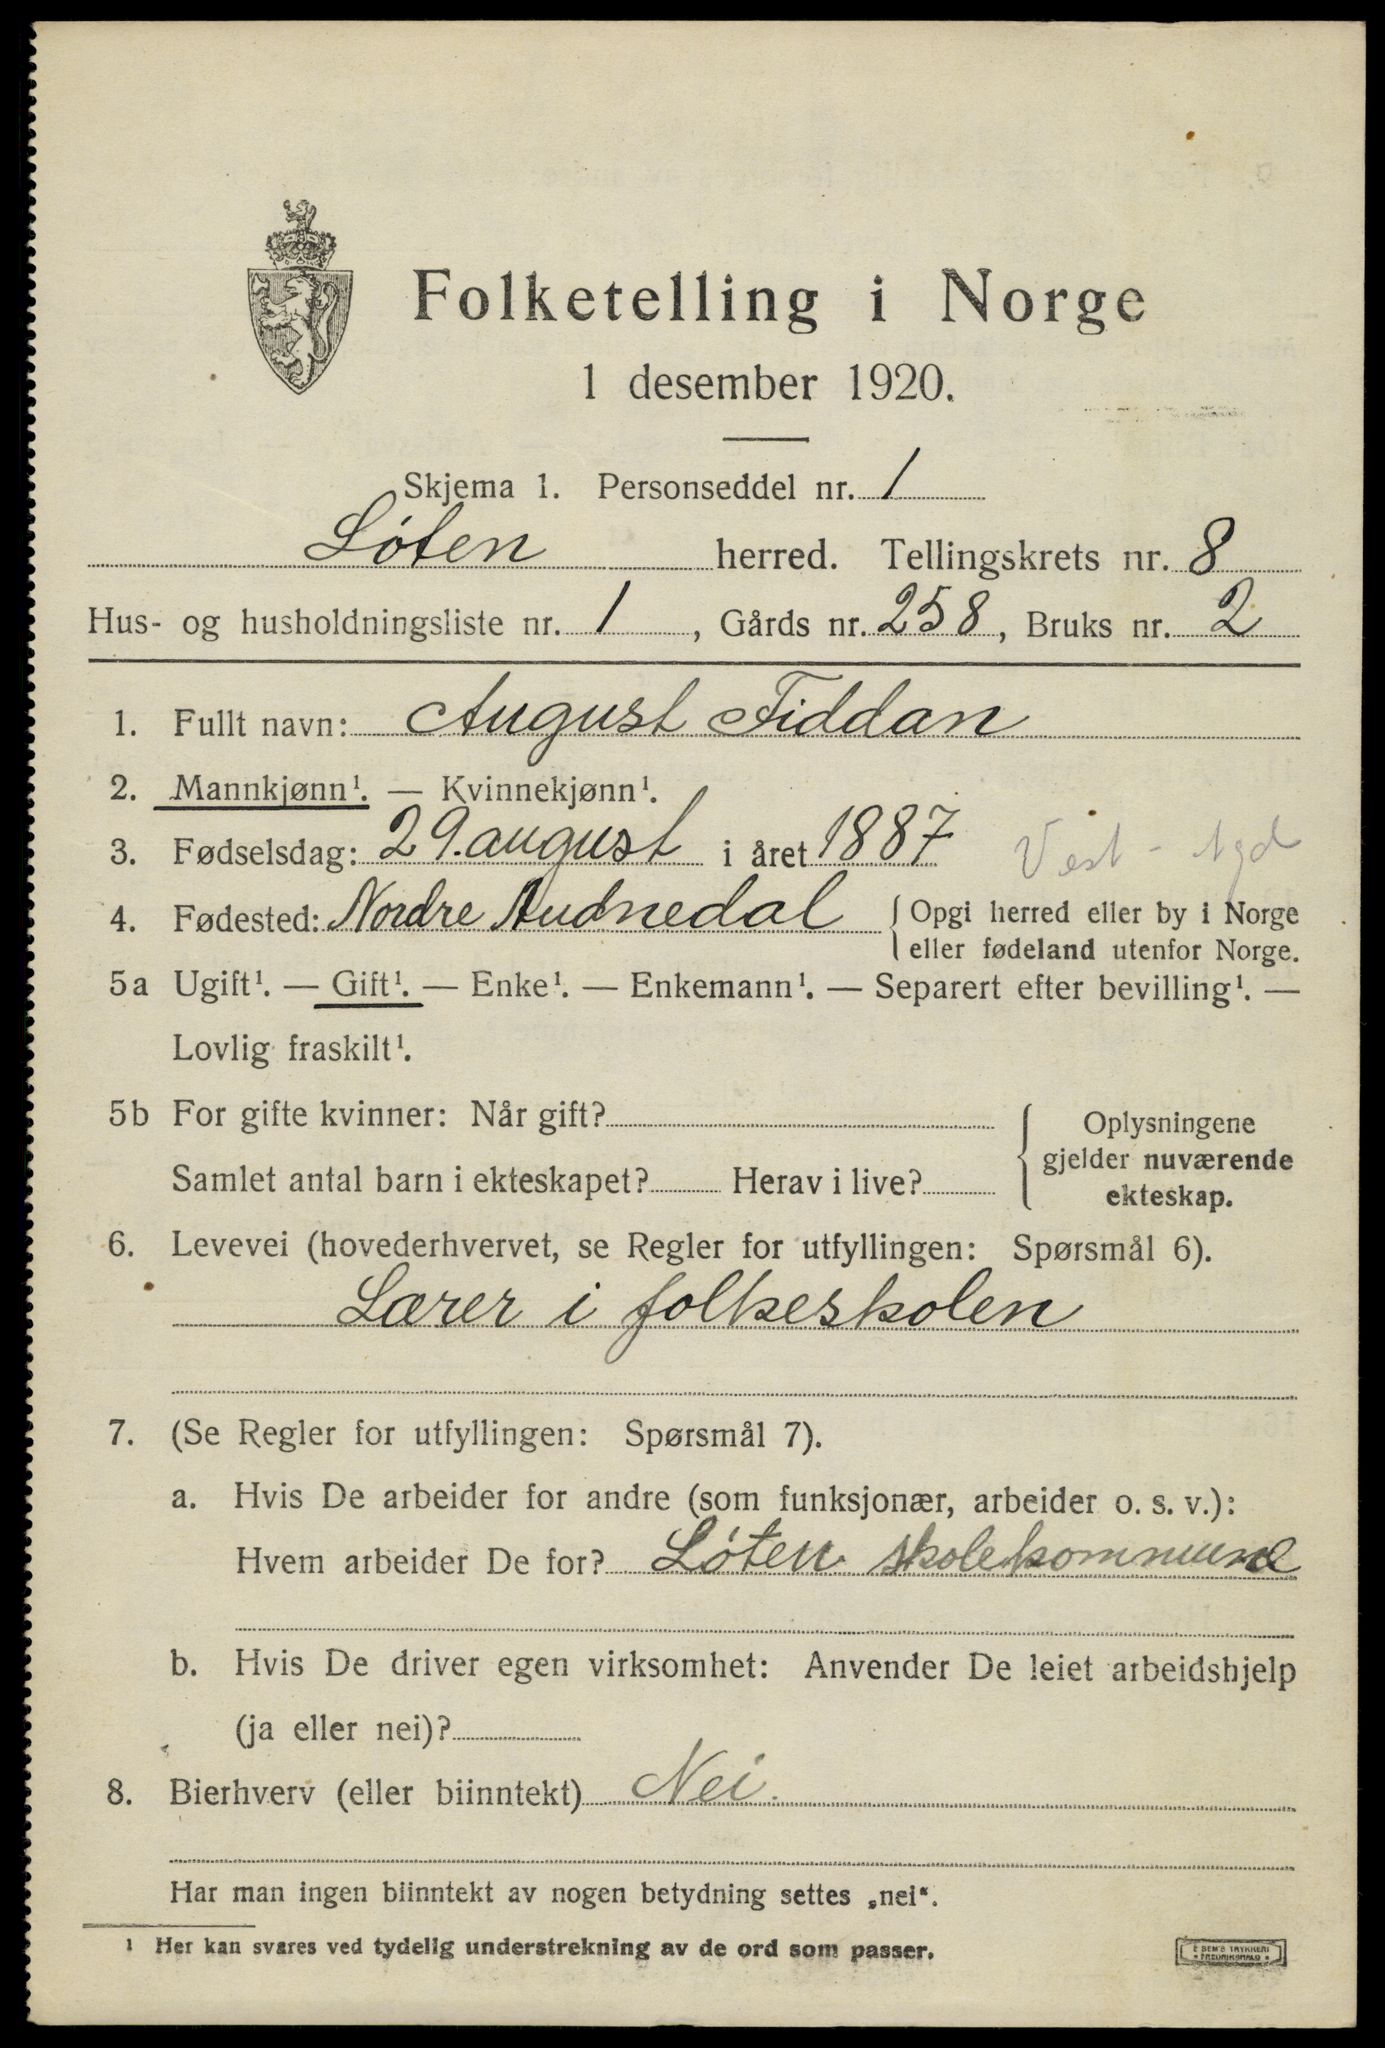 Folketelling i Norge
1 desember 1920.
Skjema 1. Personseddel nr. 1
Løten herred. Tellingskrets nr. 8
Hus- og husholdningsliste nr. 1, Gårds nr. 258, Bruks nr. 2
1. Fullt navn: August Fiddan
2. Mannkjønn¹. — Kvinnekjønn¹.
3. Fødselsdag: 29. august i året 1887 Vest-Agd
4. Fødested: Nordre Audnedal { Opgi herred eller by i Norge
eller fødeland utenfor Norge.
5a Ugift¹. — Gift¹. — Enke¹. — Enkemann¹. — Separert efter bevilling¹. —
Lovlig fraskilt¹.
5b For gifte kvinner: Når gift? { Oplysningene
gjelder nuværende
Samlet antal barn i ekteskapet? Herav i live? ekteskap.
6. Levevei (hovederhvervet, se Regler for utfyllingen: Spørsmål 6).
Lærer i folkeskolen
7. (Se Regler for utfyllingen: Spørsmål 7).
a. Hvis De arbeider for andre (som funksjonær, arbeider o. s. v.):
Hvem arbeider De for? Løten skolekommune
b. Hvis De driver egen virksomhet: Anvender De leiet arbeidshjelp
(ja eller nei)?
8. Bierhverv (eller biinntekt) Nei.
Har man ingen biinntekt av nogen betydning settes „nei“.
¹ Her kan svares ved tydelig understrekning av de ord som passer.
E SEM'S TRYKKERI
• FREDRIKSHALD •